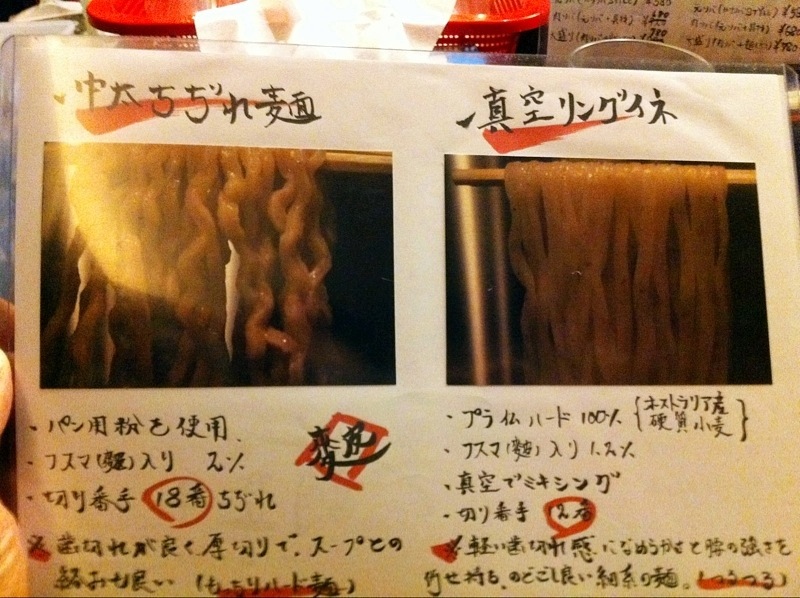 中太ちぢれ麺
・パン用粉を使用、
・フスマ(麬)入り 2%
・切り番手 18番 ちぢれ
※歯切れが良く厚切りで、スープとの
絡みも良い (もっちりハード麺)
真空リングイネ
・プライムハード 100% {オストラリア産
硬質小麦}
・フスマ(麬)入り 1.2%
・真空でミキシング
・切り番手 12番
※軽い歯切れ感になめらかさと腰の強さを
併せ持ち、のどごし良い細系の麺。(つるつる)